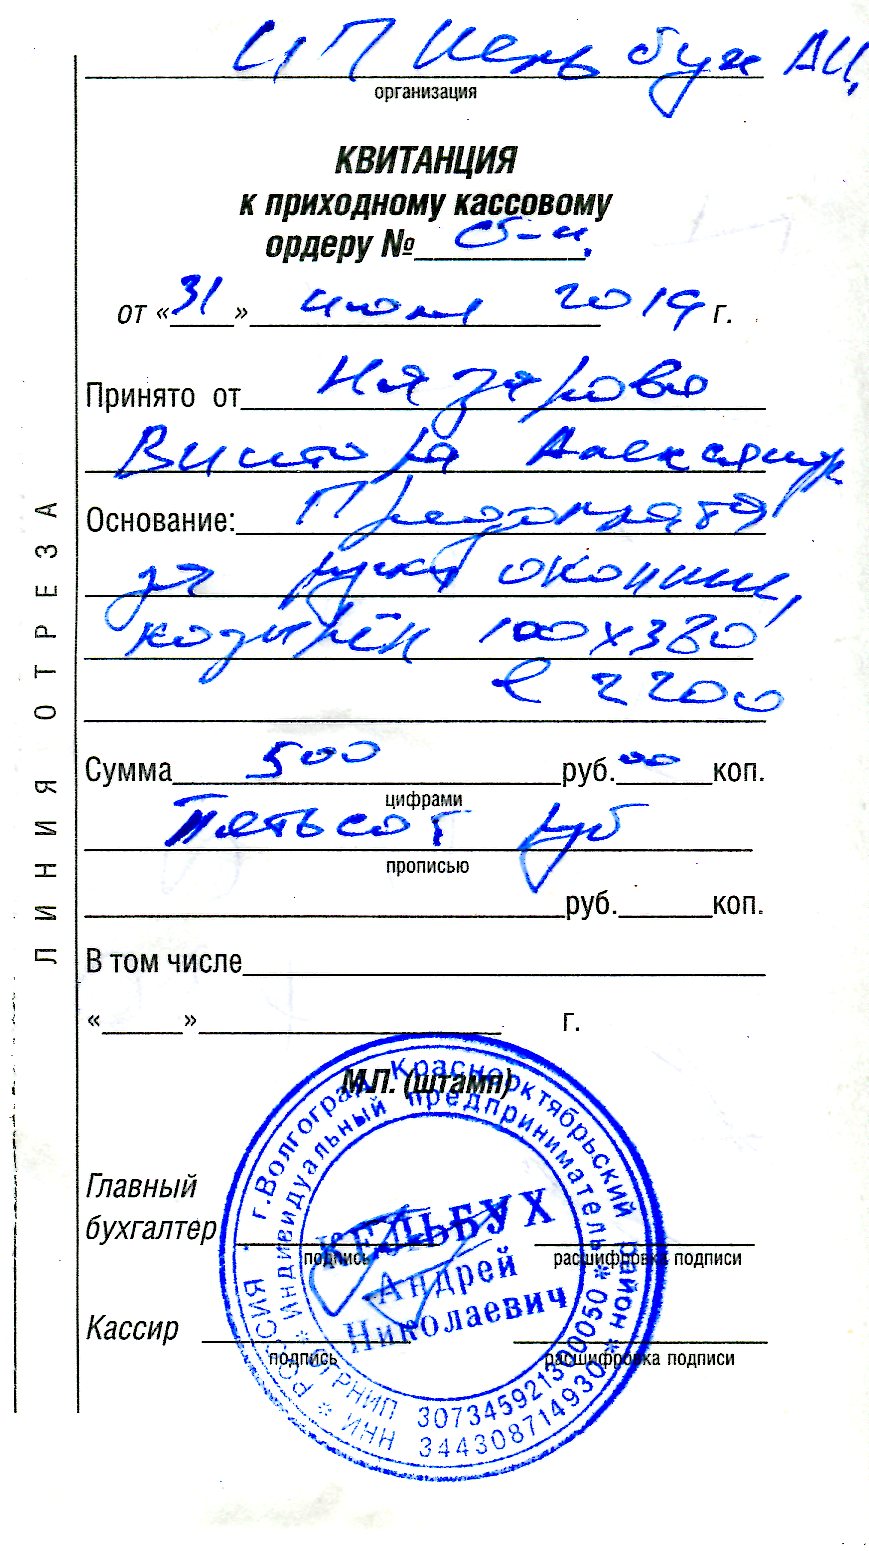 ИП Кельбух АН.
организация
КВИТАНЦИЯ
к приходному кассовому
ордеру №
от «31» июля 2019 г.
Принято от Назарова
Виктора Александр
Основание: Предоплата
за
козырёк 100х380
2200
Сумма 500 руб. 00 коп.
цифрами
Пятьсот руб
прописью
руб. коп.
В том числе
« » г.
М.П. (штамп)
Главный
бухгалтер
подпись расшифровка подписи
Кассир
подпись расшифровка подписи
ЛИНИЯ ОТРЕЗА
РОССИЯ * г.Волгоград Краснооктябрьский район * ИНН 344308714930
* Индивидуальный предприниматель * ОГРНИП 307345921300050
КЕЛЬБУХ
Андрей
Николаевич